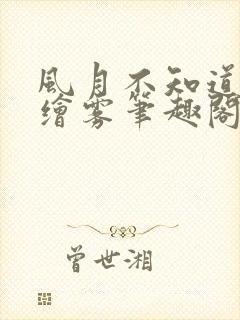 風月不知道
繪雾筆趣閣
曾世湘